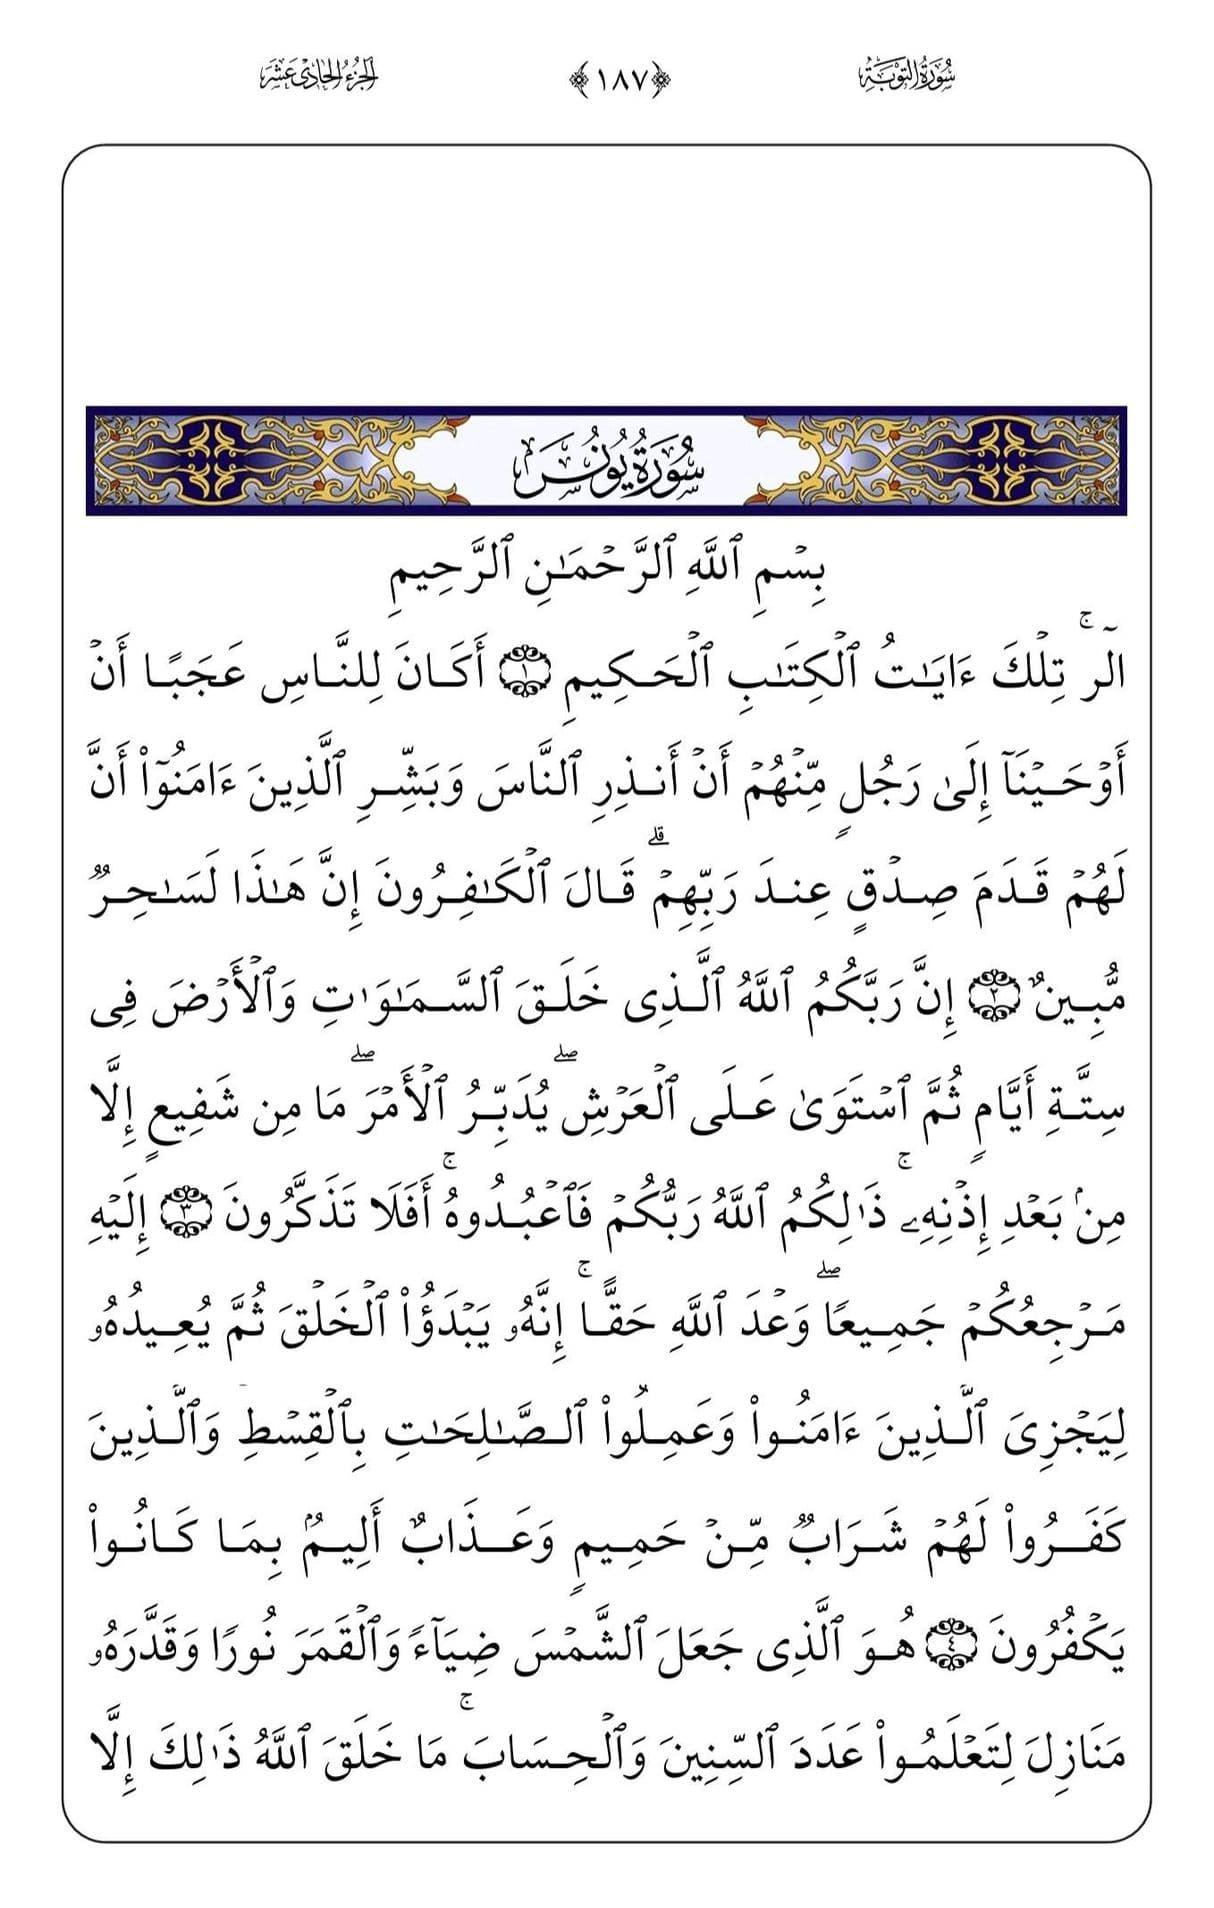 سُورَةُ التَّوْبَةِ ﴿١٨٧﴾ الجُزْءُ الحَادِي عَشَرَ
سُورَةُ يُونُسَ
بِسْمِ ٱللَّهِ ٱلرَّحْمَـٰنِ ٱلرَّحِيمِ
الٓر ۚ تِلْكَ ءَايَـٰتُ ٱلْكِتَـٰبِ ٱلْحَكِيمِ ١ أَكَانَ لِلنَّاسِ عَجَبًا أَنْ
أَوْحَيْنَآ إِلَىٰ رَجُلٍ مِّنْهُمْ أَنْ أَنذِرِ ٱلنَّاسَ وَبَشِّرِ ٱلَّذِينَ ءَامَنُوٓا۟ أَنَّ
لَهُمْ قَدَمَ صِدْقٍ عِندَ رَبِّهِمْ ۗ قَالَ ٱلْكَـٰفِرُونَ إِنَّ هَـٰذَا لَسَـٰحِرٌ
مُّبِينٌ ٢ إِنَّ رَبَّكُمُ ٱللَّهُ ٱلَّذِى خَلَقَ ٱلسَّمَـٰوَٰتِ وَٱلْأَرْضَ فِى
سِتَّةِ أَيَّامٍ ثُمَّ ٱسْتَوَىٰ عَلَى ٱلْعَرْشِ ۖ يُدَبِّرُ ٱلْأَمْرَ ۖ مَا مِن شَفِيعٍ إِلَّا
مِنۢ بَعْدِ إِذْنِهِۦ ۚ ذَٰلِكُمُ ٱللَّهُ رَبُّكُمْ فَٱعْبُدُوهُ ۚ أَفَلَا تَذَكَّرُونَ ٣ إِلَيْهِ
مَرْجِعُكُمْ جَمِيعًا ۖ وَعْدَ ٱللَّهِ حَقًّا ۚ إِنَّهُۥ يَبْدَؤُا۟ ٱلْخَلْقَ ثُمَّ يُعِيدُهُۥ
لِيَجْزِىَ ٱلَّذِينَ ءَامَنُوا۟ وَعَمِلُوا۟ ٱلصَّـٰلِحَـٰتِ بِٱلْقِسْطِ ۚ وَٱلَّذِينَ
كَفَرُوا۟ لَهُمْ شَرَابٌ مِّنْ حَمِيمٍ وَعَذَابٌ أَلِيمٌۢ بِمَا كَانُوا۟
يَكْفُرُونَ ٤ هُوَ ٱلَّذِى جَعَلَ ٱلشَّمْسَ ضِيَآءً وَٱلْقَمَرَ نُورًا وَقَدَّرَهُۥ
مَنَازِلَ لِتَعْلَمُوا۟ عَدَدَ ٱلسِّنِينَ وَٱلْحِسَابَ ۚ مَا خَلَقَ ٱللَّهُ ذَٰلِكَ إِلَّا